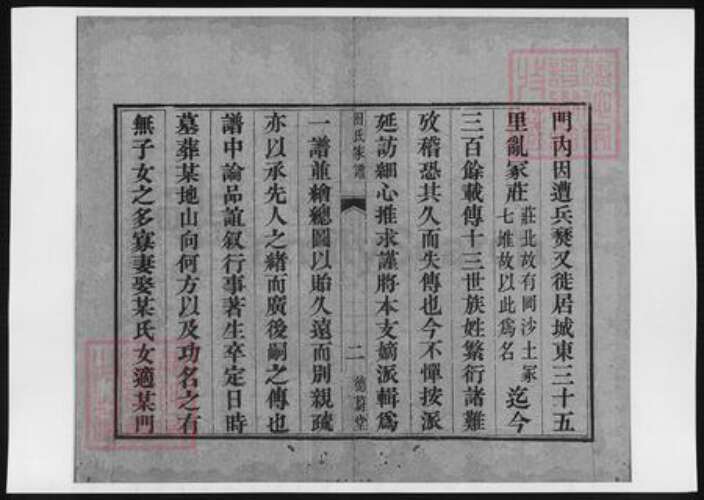 門內因遭兵燹又徙居城東三十五
里亂冢莊 莊北故有岡沙土冢
七堆故以此爲名 迄今
三百餘載傳十三世族姓繁衍諸難
攷稽恐其久而失傳也今不憚按派
延訪細心推求謹將本支嫡派輯爲
田氏家譜 二
一譜並繪總圖以貽久遠而別親疏
亦以承先人之緒而廣後嗣之傳也
譜中論品誼叙行事著生卒定日時
墓葬某地山向何方以及功名之有
無子女之多寡妻娶某氏女適某門